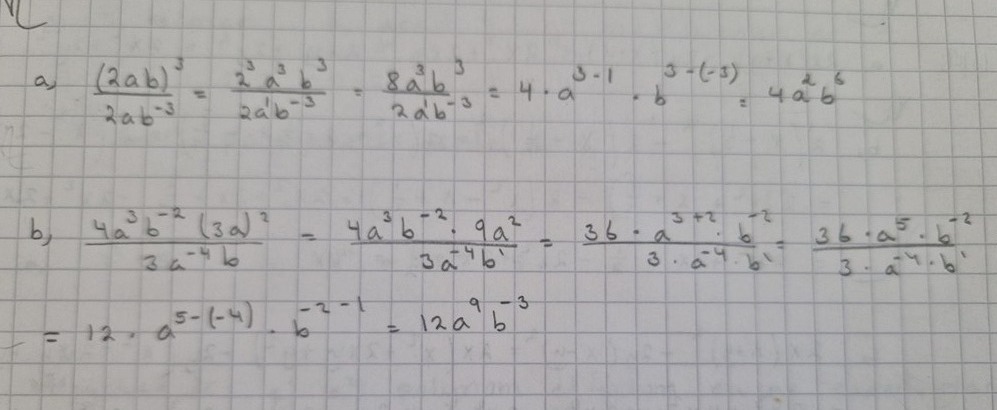 a) (2ab)³/2ab⁻³ = 2³a³b³/2a¹b⁻³ = 8a³b³/2a¹b⁻³ = 4 · a³⁻¹ · b³⁻⁽⁻³⁾ = 4a²b⁶
b) 4a³b⁻²(3a)²/3a⁻⁴b = 4a³b⁻² · 9a²/3a⁻⁴b¹ = 36 · a³⁺² · b⁻²/3 · a⁻⁴ · b¹ = 36 · a⁵ · b⁻²/3 · a⁻⁴ · b¹
= 12 · a⁵⁻⁽⁻⁴⁾ · b⁻²⁻¹ = 12a⁹b⁻³